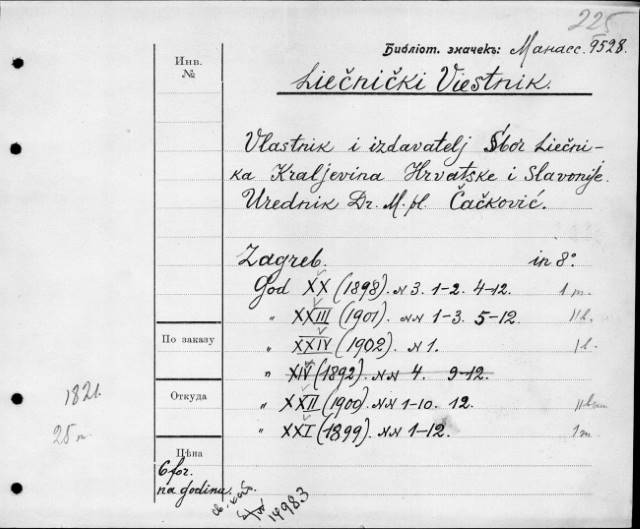 225
Библіот. значекъ: Манасс. 9528.
Инв.
№
Liečnički Viestnik.
Vlastnik i izdavatelj Sbor Liečni-
ka Kraljevina Hrvatske i Slavonije.
Urednik Dr. M. pl. Čačković.
Zagreb. in 8°
God XX (1898). N 3. 1-2. 4-12. 1 m.
" XXIII (1901). NN 1-3. 5-12.
По заказу
" XXIV (1902). N 1.
" XIV (1892). NN 4. 9-12.
Откуда
1821.
" XXII (1900). NN 1-10. 12.
25 m
" XXI (1899). NN 1-12. 1 m.
Цѣна
6 for.
na godinu.
14983